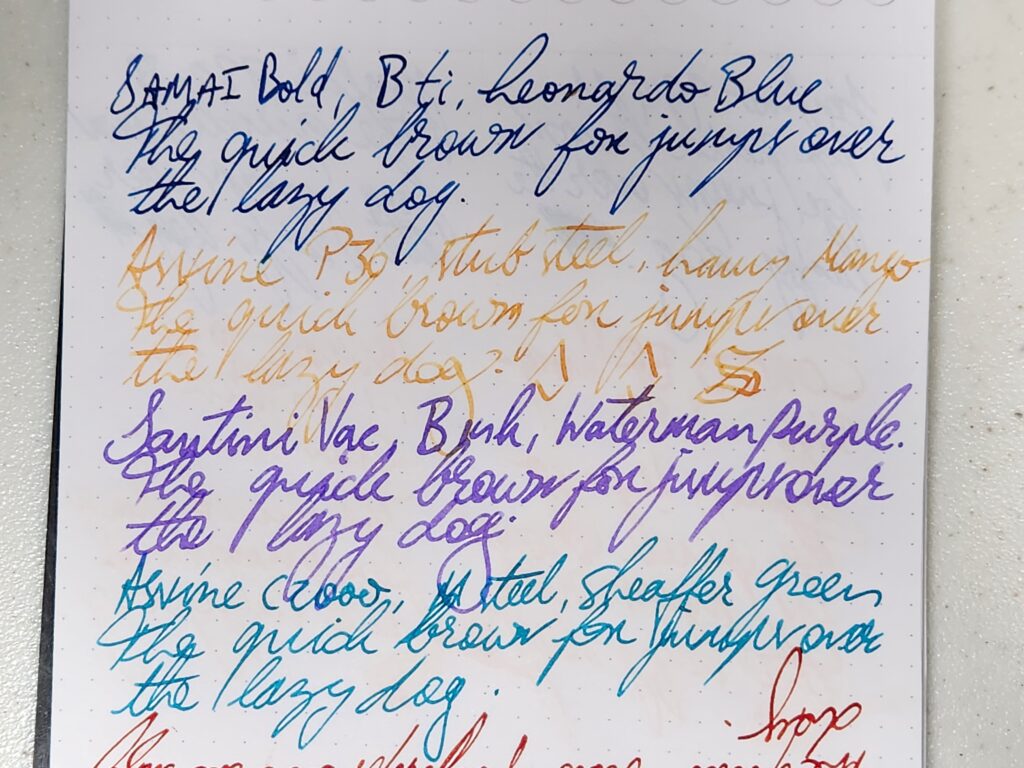 SAMAI Bold, B ti, Leonardo Blue
The quick brown fox jumps over
the lazy dog.
Asvine P36, stub steel, Mango
The quick brown fox jumps over
the lazy dog.
Santini Vac, B Waterman Purple.
The quick brown fox jumps over
the lazy dog.
Asvine steel, Sheaffer Green
The quick brown fox jumps over
the lazy dog.